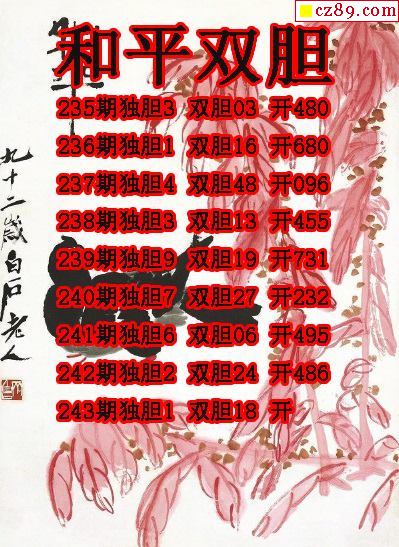 cz89.com
和平双胆
235期独胆3 双胆03 开480
236期独胆1 双胆16 开680
237期独胆4 双胆48 开096
238期独胆3 双胆13 开455
239期独胆9 双胆19 开731
240期独胆7 双胆27 开232
241期独胆6 双胆06 开495
242期独胆2 双胆24 开486
243期独胆1 双胆18 开
九十二岁白石老人